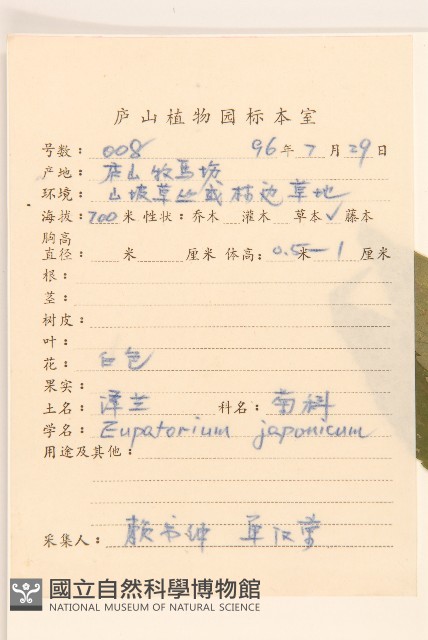 庐山植物园标本室
号数: 008 96年 7月 29日
产地: 庐山牧马场
环境: 山坡草丛或林边草地
海拔: 700米 性状: 乔木 灌木 草本✓ 藤本
胸高
直径: 米 厘米 体高: 0.5米—1 厘米
根:
茎:
树皮:
叶:
花: 白色
果实:
土名: 泽兰 科名: 菊科
学名: Eupatorium japonicum
用途及其他:
采集人: 赖书绅
國立自然科學博物館
NATIONAL MUSEUM OF NATURAL SCIENCE